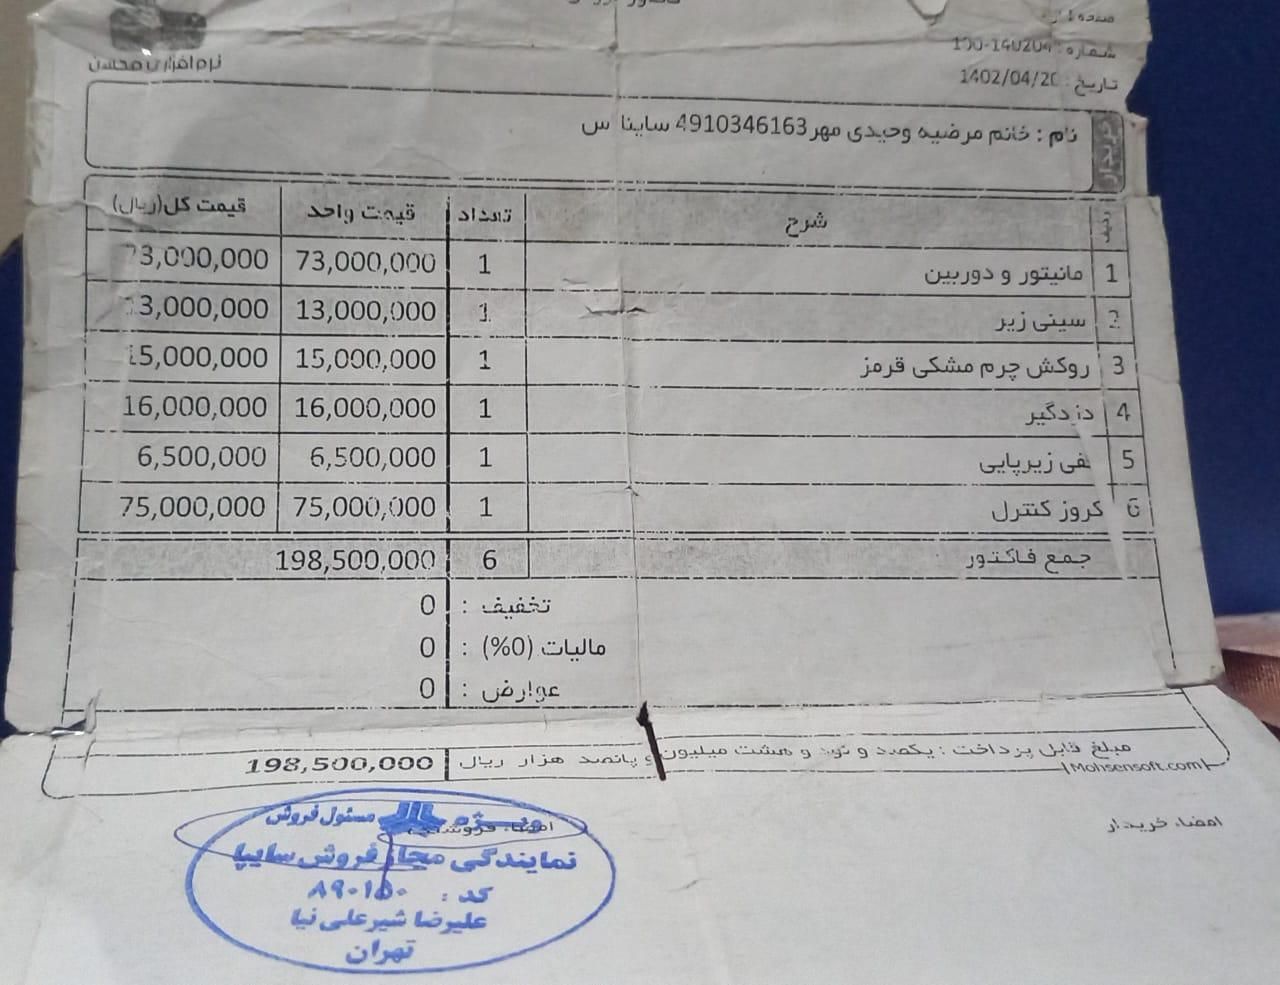 نرم افزاری محسن
شماره : 100-140204
تاریخ : 1402/04/20
خریدار
نام : خانم مرضیه وحیدی مهر4910346163 ساینا س
ردیف شرح تعداد قیمت واحد قیمت کل(ریال)
1 مانیتور و دوربین 1 73,000,000 73,000,000
2 سینی زیر 1 13,000,000 13,000,000
3 روکش چرم مشکی قرمز 1 15,000,000 15,000,000
4 دزدگیر 1 16,000,000 16,000,000
5 کفی زیرپایی 1 6,500,000 6,500,000
6 کروز کنترل 1 75,000,000 75,000,000
جمع فاکتور 6 198,500,000
تخفیف : 0
مالیات (0%) : 0
عوارض : 0
مبلغ قابل پرداخت : یکصد و نود و هشت میلیون و پانصد هزار ریال 198,500,000
Mohsensoft.com
امضاء خریدار
امضاء فروشنده
مسئول فروش
نمایندگی مجاز فروش سایپا
کد : ۸۹۰۱۵۰
علیرضا شیرعلی نیا
تهران